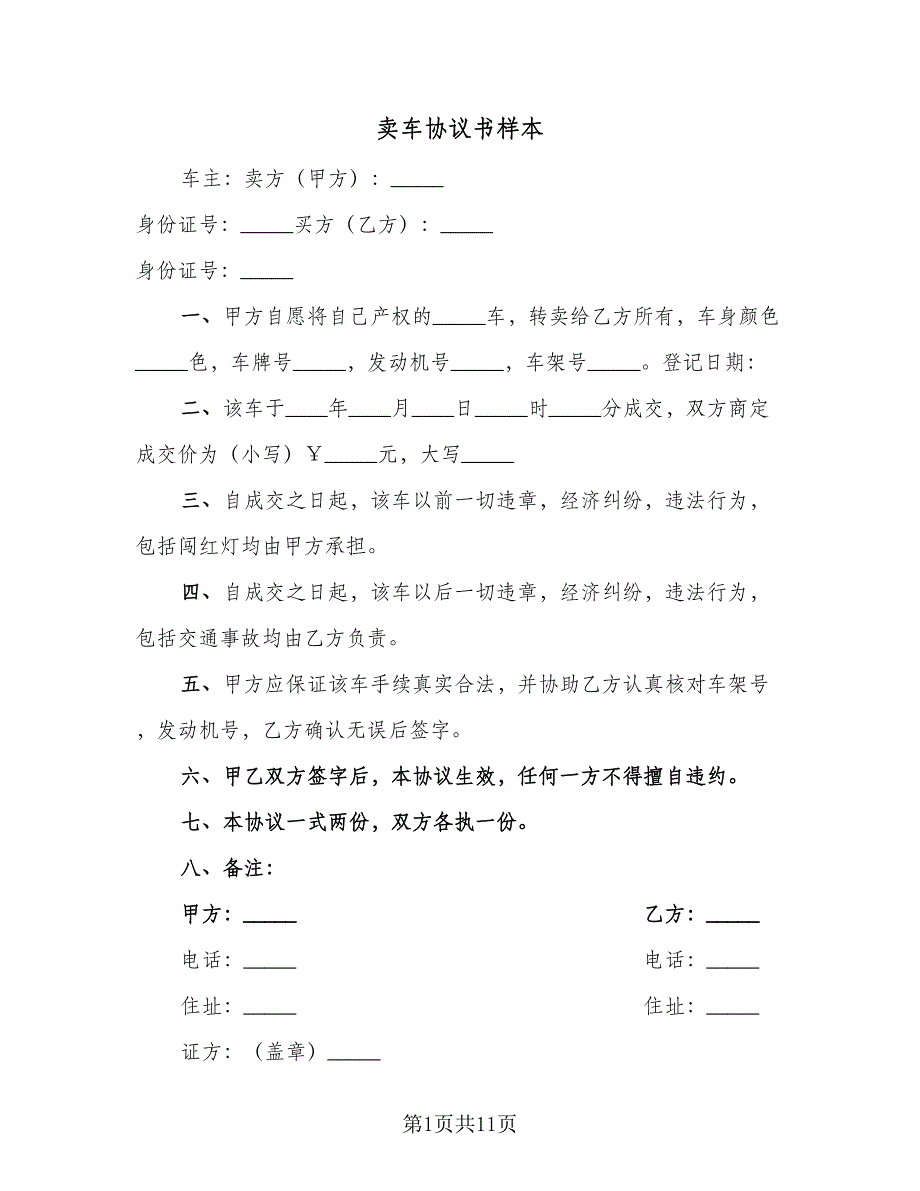 卖车协议书样本
车主：卖方（甲方）：_____
身份证号：_____买方（乙方）：_____
身份证号：_____
一、甲方自愿将自己产权的_____车，转卖给乙方所有，车身颜色
_____色，车牌号_____，发动机号_____，车架号_____。登记日期：
二、该车于____年____月____日_____时_____分成交，双方商定
成交价为（小写）￥_____元，大写_____
三、自成交之日起，该车以前一切违章，经济纠纷，违法行为，
包括闯红灯均由甲方承担。
四、自成交之日起，该车以后一切违章，经济纠纷，违法行为，
包括交通事故均由乙方负责。
五、甲方应保证该车手续真实合法，并协助乙方认真核对车架号
，发动机号，乙方确认无误后签字。
六、甲乙双方签字后，本协议生效，任何一方不得擅自违约。
七、本协议一式两份，双方各执一份。
八、备注：
甲方：_____ 乙方：_____
电话：_____ 电话：_____
住址：_____ 住址：_____
证方：（盖章）_____
第1页共11页